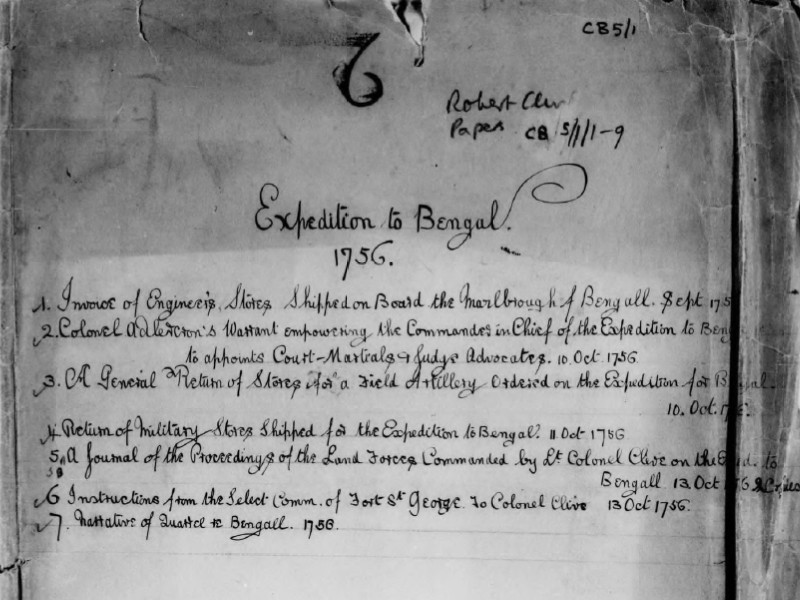 CB5/1
7
Robert Cliv
Papers CB 5/1/1-9
Expedition to Bengal.
1756.
1. Invoice of Engineers Stores Shipped on Board the Marlbrough f Bengall. Sept 175
2. Colonel Adlercron's Warrant empowering the Commander in Chief of the Expedition to Beng
to appoints Court-Martials & Judge Advocates. 10. Oct 1756.
3. A General Return of Stores for a Field Artillery Ordered on the Expedition for Bengal.
10. Oct. 17
4 Return of Military Stores Shipped for the Expedition to Bengal. 11 Oct 1756
5. A Journal of the Proceedings of the Land Forces Commanded by Lt Colonel Clive on the to
5B Bengall 13 Oct
6 Instructions from the Select Comm. of Fort St George to Colonel Clive 13 Oct 1756.
7. Narrative of Quarrel in Bengall. 1756.